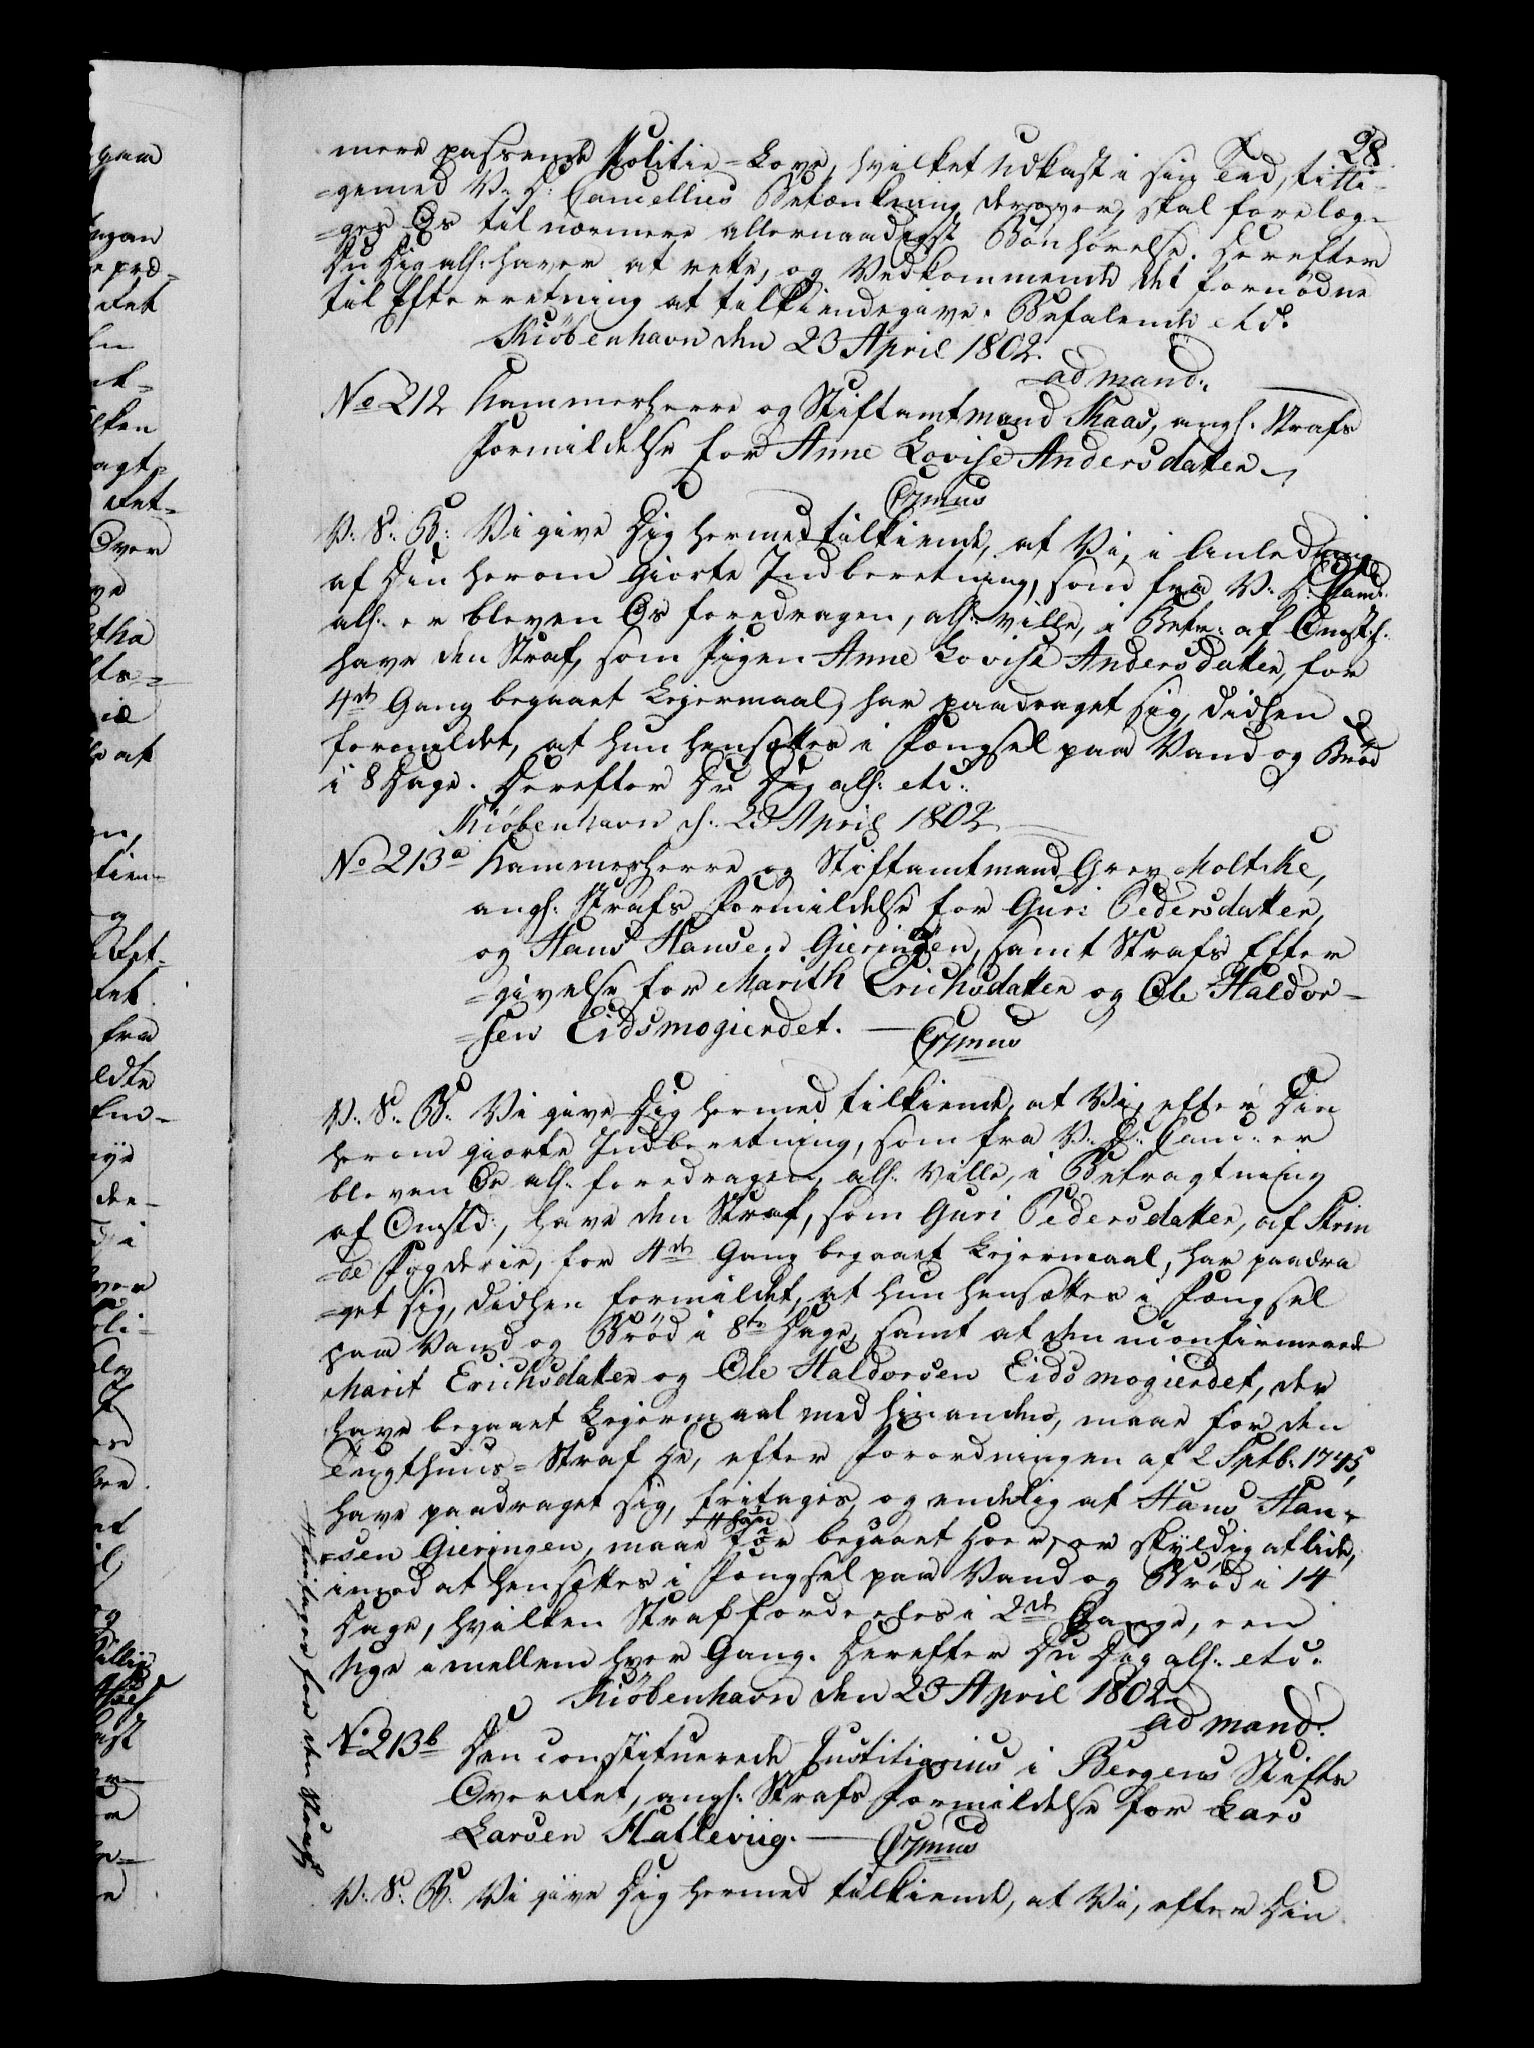 28
mere passende Politie-Love, hvilket Udkast i sin Tid, tilli-
=gemed V. D: Cancellies Betænkning derover, skal forelæg-
=ges Os til nærmere allernaadigst Bønhørelse. Derefter
Du Dig alh: haver at rette, og Vedkommende det fornødne
til Efterretning at tilkiendegive. Befalende etc.
Kiöbenhavn den 23 April 1802.
ad mand:
No 212 Kammerherre og Stiftamtmand Kaas, angh: Strafs
Formildelse for Anne Lovise Andersdatter.
Crsmus
V. S. B: Vi give Dig hermed tilkiende, at Vi, i Anledning
af Din herom giorte Indberetning, som fra V. D. Canc:
alh: er bleven Os foredragen, alh: ville, i Betr: af Omst:h:
have den Straf, som Pigen Anne Lovise Andersdatter, for
4de Gang begaaet Lejermaal, har paadraget sig, didhen
formildet, at hun hensættes i Fængsel paa Vand og Brød
i 8 Dage. Derefter Du Dig alh: etc:
Kiöbenhavn d: 23 April 1802
No 213a Kammerherre og Stiftamtmand Grev Moltke,
angh: Strafs Formildelse for Guri Pedersdatter,
og Hans Hansen Gieringen, samt Strafs Efter
=givelse for Marith Erichsdatter og Ole Haldor-
=sen Eidsmogierdet. Crsmus
V. S. B. Vi give Dig hermed tilkiende, at Vi, efter Din
herom giorte Indberetning, som fra V. D. Canc: er
bleven Os alh: foredragen, alh: ville, i Betragtning
af Omstd:, have den Straf, som Guri Pedersdatter, af Strin
=de Fogderie, for 4de Gang begaaet Lejermaal, har paadra
=get sig, didhen formildet, at hun hensættes i Fængsel
paa Vand og Brød i 8te Dage, samt at den uconfirmerede
Marit Erichsdatter og Ole Haldorsen Eidsmogierdet, der
have begaaet Lejermaal med hinanden, maae for den
Tugthuus-Straf de, efter Forordningen af 2 Sptb. 1745,
have paadraget sig, fritages, og endelig at Hans Han-
=sen Gieringen, maae # han for begaaet Hoer, er skyldig at lide,
imod at hensættes i Fængsel paa Vand og Brød i 14
Dage, hvilken Straf fordeeles i 2de Gange, een
Uge imellem hver Gang. Derefter Du Dig alh: etc:
Kiöbenhavn den 23 April 1802
ad mand:
No 213b Den constituerede Justitiarius i Bergens Stifts
Overret, angh: Strafs Formildelse for Lars
Larsen Hatleviig. Crsmus
V. S. B. Vi give Dig hermed tilkiende, at Vi, efter Din
# fritages for den Straf